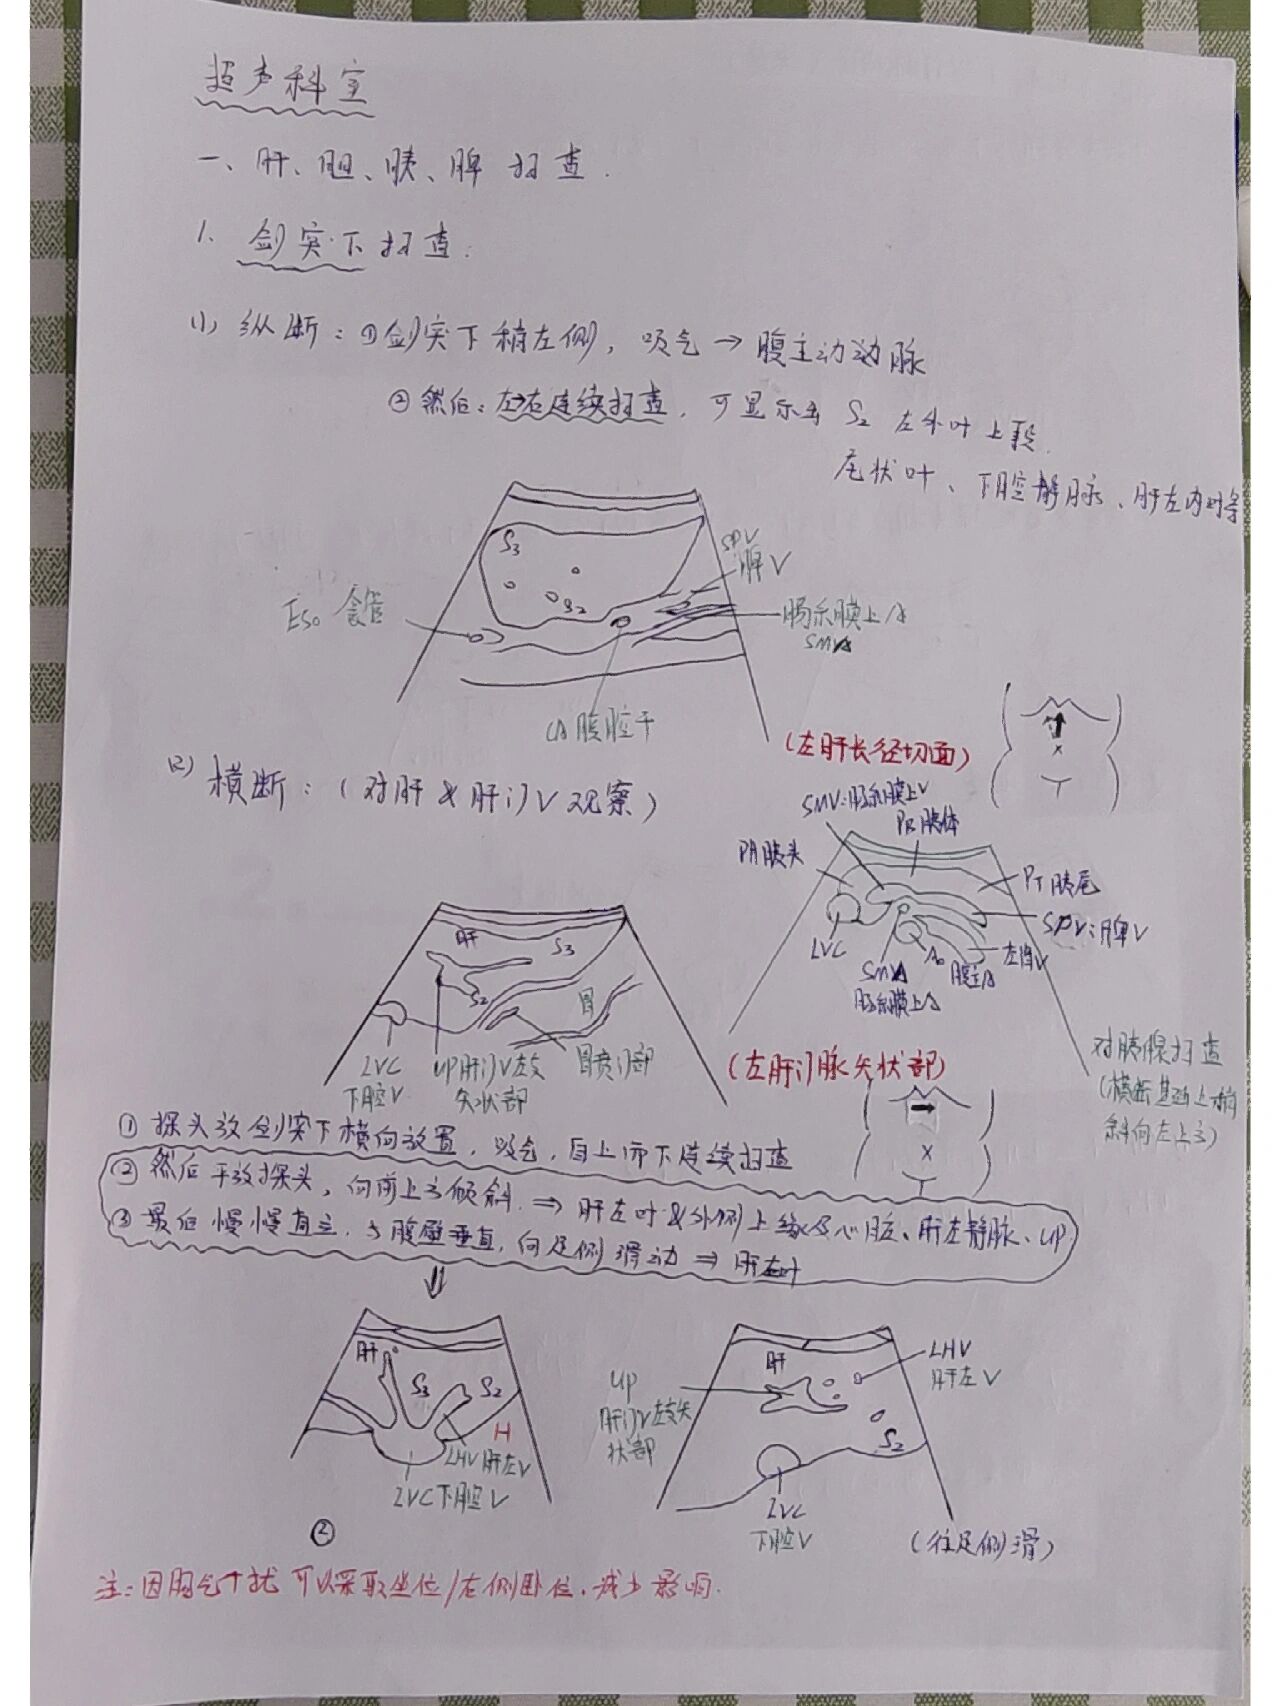 超声科室
一、肝、胆、胰、脾扫查.
1. 剑突下扫查:
(1) 纵断: ①剑突下稍左侧, 吸气→腹主动动脉
②然后: 左→右连续扫查, 可显示出 S2 左外叶上段.
尾状叶、下腔静脉、肝左内叶等
S3
S2
SPV
脾V
Eso 食管
肠系膜上A
SMA
CA腹腔干
(左肝长径切面)
(2) 横断: (对肝&肝门V观察)
SMV:肠系膜上V
PB胰体
PH胰头
PT胰尾
SPV:脾V
IVC
SMA
肠系膜上A
Ao
腹主A
左肾V
肝
S3
S2
胃
IVC
下腔V
UP肝门V左支
矢状部
胃贲门部
(左肝门脉矢状部)
对胰腺扫查
(横断基础上稍
斜向左上方)
①探头放剑突下横向放置, 吸气, 自上而下连续扫查
②然后平放探头, 向前上方倾斜. ⇒ 肝左叶&外侧上缘及心脏、肝左静脉、UP
③最后慢慢直立, 与腹壁垂直, 向足侧滑动 ⇒ 肝左叶
肝
S3
S2
H
LHV肝左V
IVC下腔V
②
肝
LHV
肝左V
UP
肝门V左支矢
状部
S2
IVC
下腔V
(往足侧滑)
注:因胃气干扰 可以采取坐位/左侧卧位,减少影响.